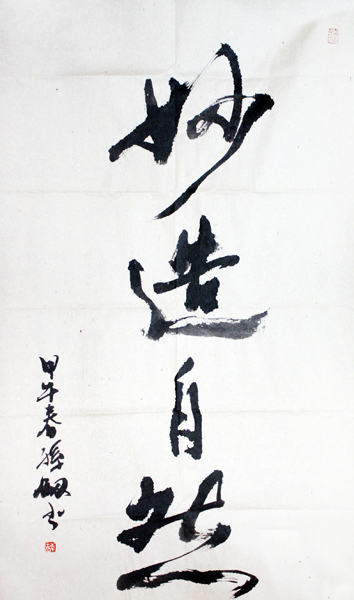 妙造自然
甲午春孫書